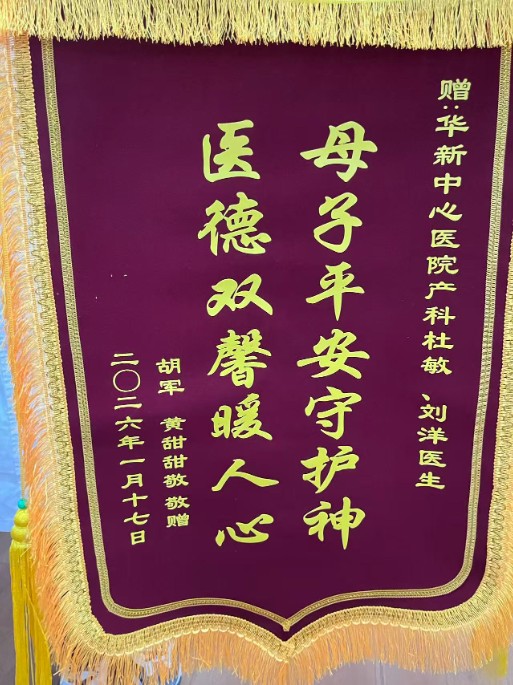 赠：华新中心医院产科杜敏、刘洋医生
母子平安守护神
医德双馨暖人心
胡军 黄甜甜敬敬赠
二〇二六年一月十七日